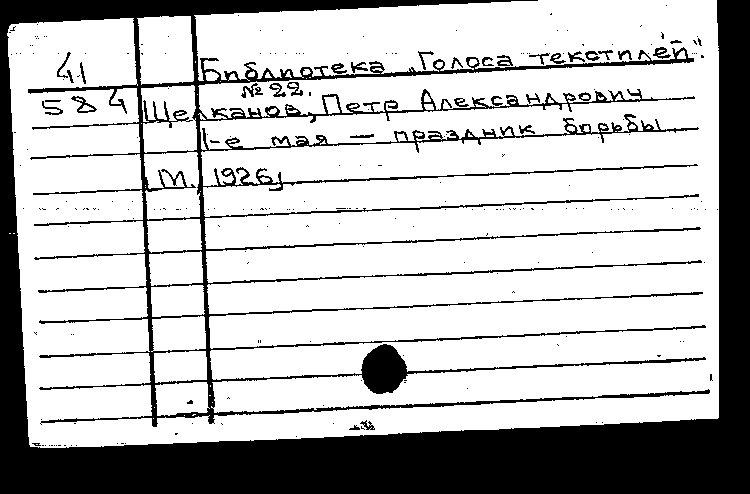 41
Библиотека „Голоса текстилей".
№ 22.
584
Щелканов, Петр Александрович.
1-е мая — праздник борьбы.
[М., 1926]